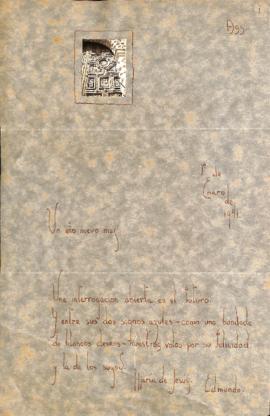 1º de
Enero
de
1941.
Un año nuevo más
Una interrogación abierta en el futuro.
Y entre sus dos signos azules – como una bandada
de blancos deseos – nuestros votos por su felicidad
y la de los suyos.
María de Jesús. Edmundo.